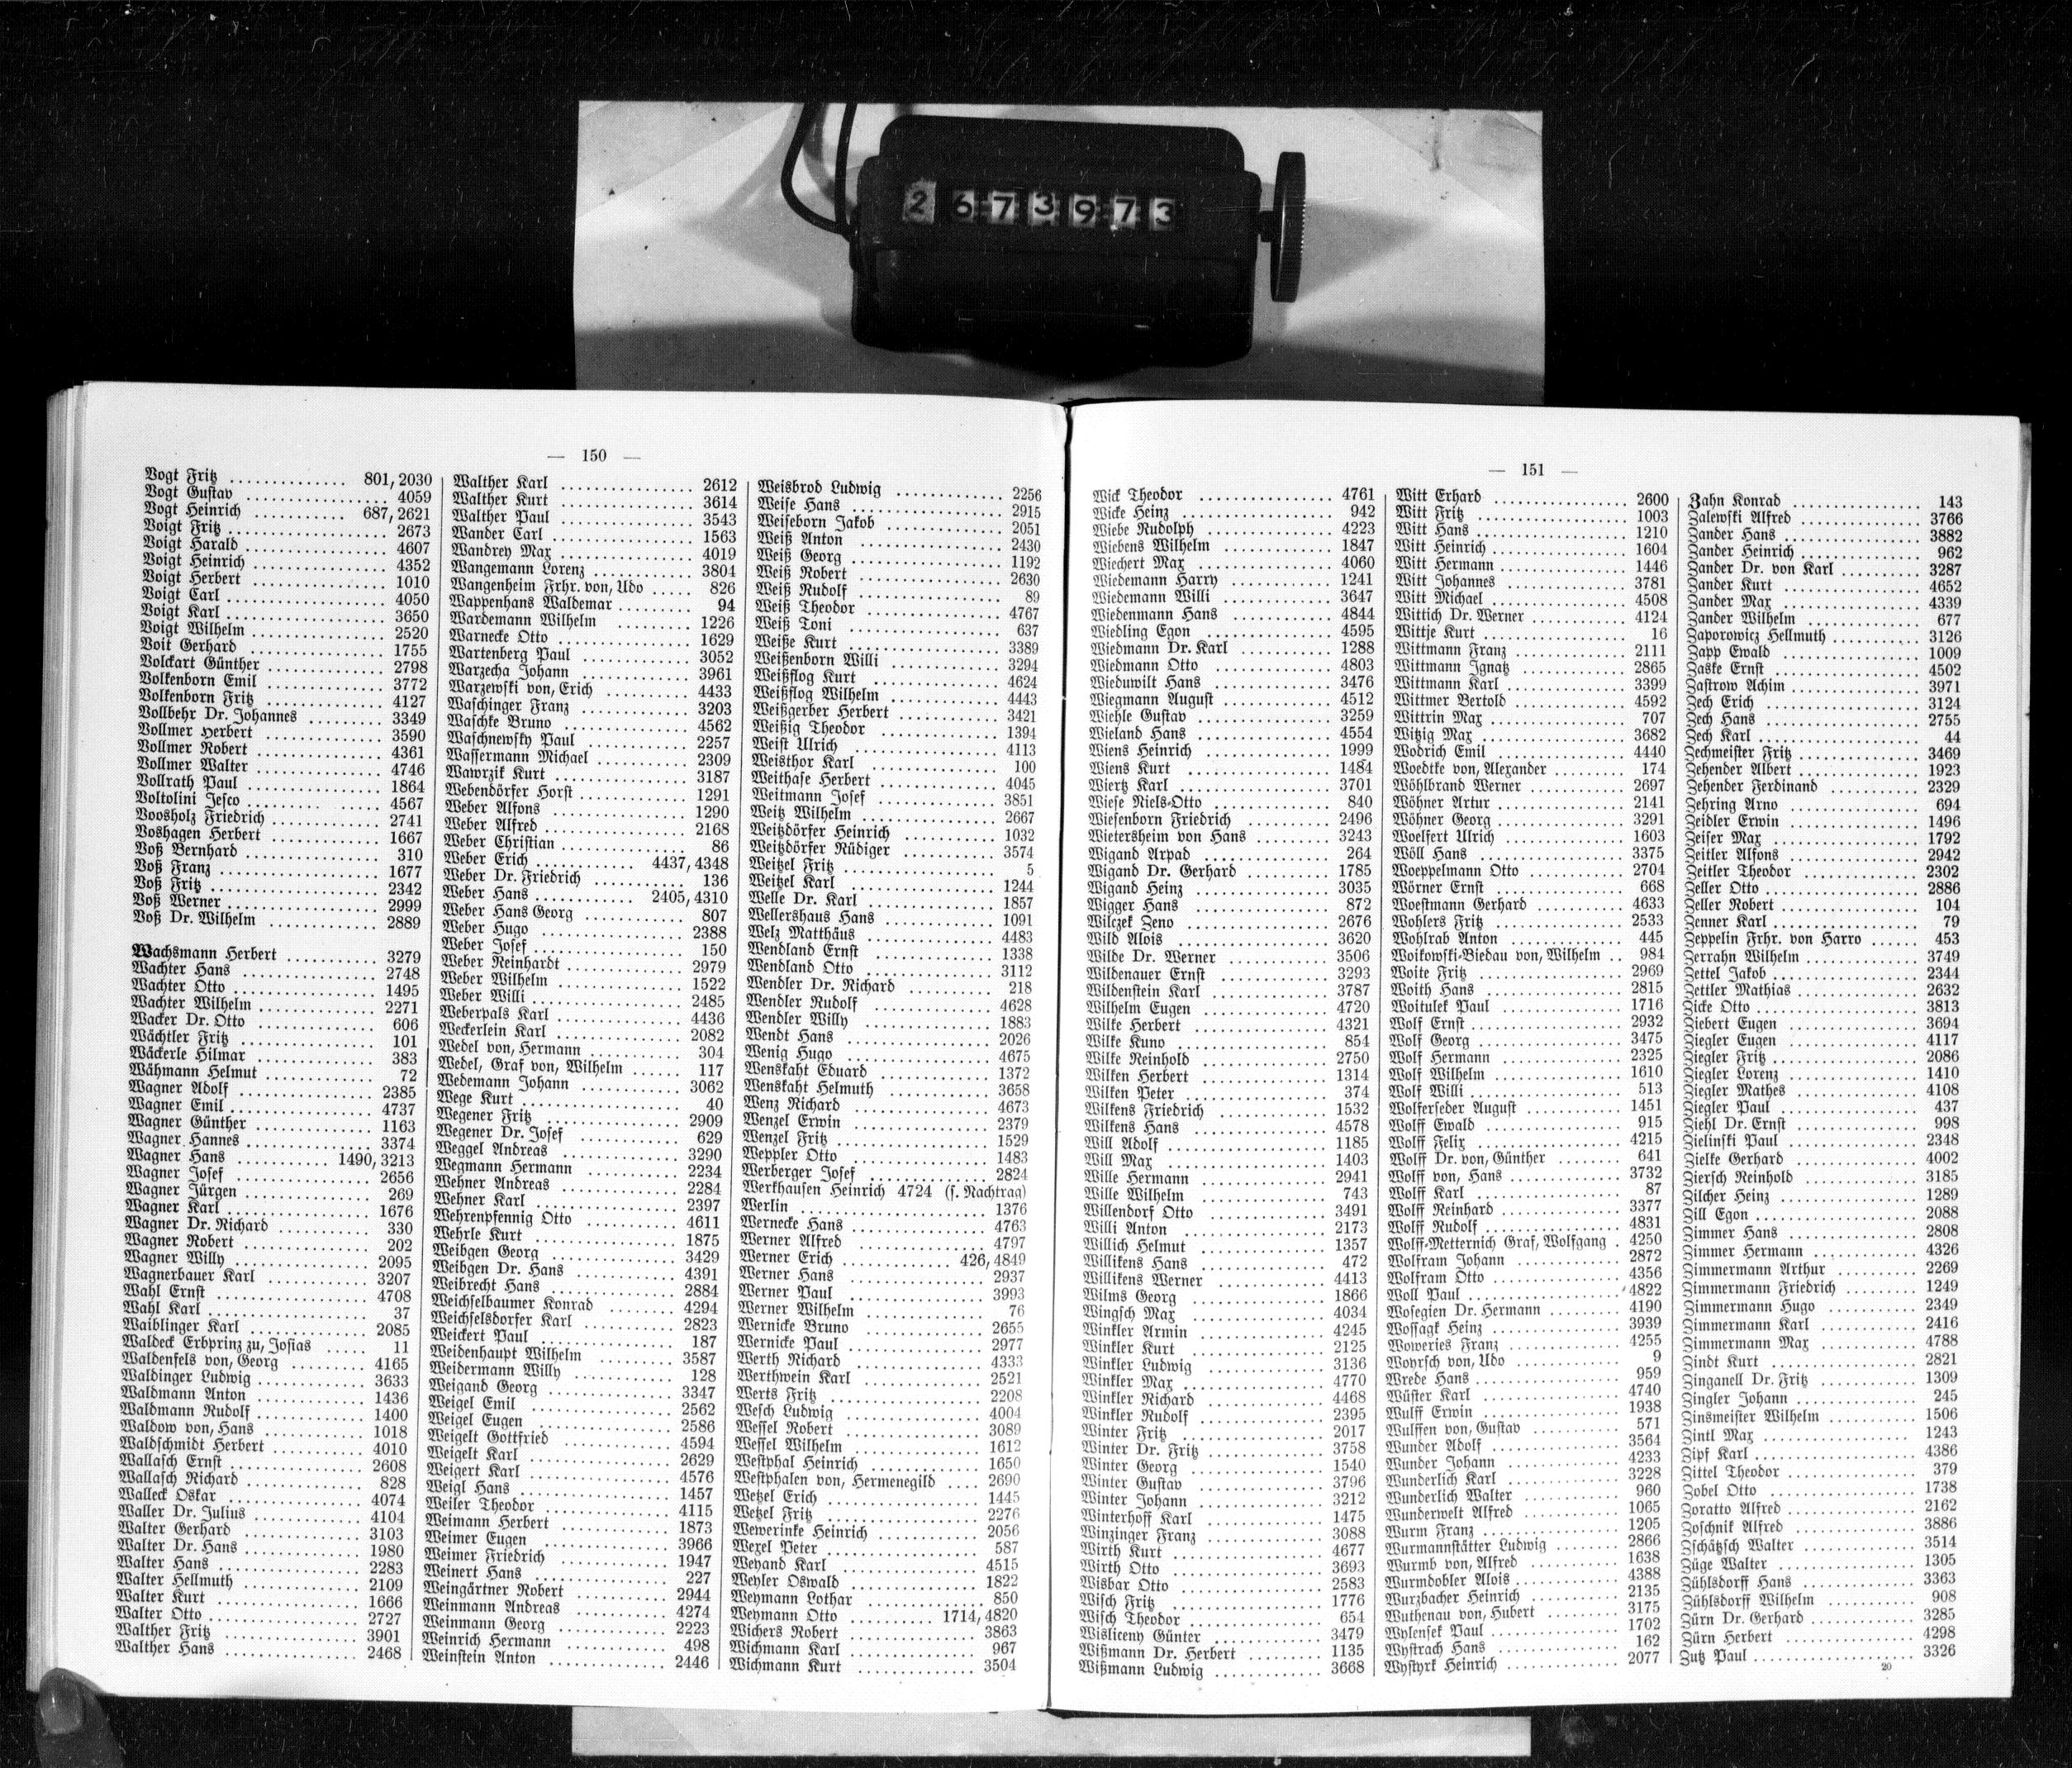 2673973
— 150 —
Vogt Fritz 801, 2030
Vogt Gustav 4059
Vogt Heinrich 687, 2621
Voigt Fritz 2673
Voigt Harald 4607
Voigt Heinrich 4352
Voigt Herbert 1010
Voigt Carl 4050
Voigt Karl 3650
Voigt Wilhelm 2520
Voit Gerhard 1755
Volckart Günther 2798
Volkenborn Emil 3772
Volkenborn Fritz 4127
Vollbehr Dr. Johannes 3349
Vollmer Herbert 3590
Vollmer Robert 4361
Vollmer Walter 4746
Vollrath Paul 1864
Voltolini Jesco 4567
Voosholz Friedrich 2741
Voshagen Herbert 1667
Voß Bernhard 310
Voß Franz 1677
Voß Fritz 2342
Voß Werner 2999
Voß Dr. Wilhelm 2889
Wachsmann Herbert 3279
Wachter Hans 2748
Wachter Otto 1495
Wachter Wilhelm 2271
Wacker Dr. Otto 606
Wächtler Fritz 101
Wäckerle Hilmar 383
Wähmann Helmut 72
Wagner Adolf 2385
Wagner Emil 4737
Wagner Günther 1163
Wagner Hannes 3374
Wagner Hans 1490, 3213
Wagner Josef 2656
Wagner Jürgen 269
Wagner Karl 1676
Wagner Dr. Richard 330
Wagner Robert 202
Wagner Willy 2095
Wagnerbauer Karl 3207
Wahl Ernst 4708
Wahl Karl 37
Waiblinger Karl 2085
Waldeck Erbprinz zu, Josias 11
Waldenfels von, Georg 4165
Waldinger Ludwig 3633
Waldmann Anton 1436
Waldmann Rudolf 1400
Waldow von, Hans 1018
Waldschmidt Herbert 4010
Wallasch Ernst 2608
Wallasch Richard 828
Walleck Oskar 4074
Waller Dr. Julius 4104
Walter Gerhard 3103
Walter Dr. Hans 1980
Walter Hans 2283
Walter Hellmuth 2109
Walter Kurt 1666
Walter Otto 2727
Walther Fritz 3901
Walther Hans 2468
Walther Karl 2612
Walther Kurt 3614
Walther Paul 3543
Wander Carl 1563
Wandrey Max 4019
Wangemann Lorenz 3804
Wangenheim Frhr. von, Udo 826
Wappenhans Waldemar 94
Wardemann Wilhelm 1226
Warnecke Otto 1629
Wartenberg Paul 3052
Warzecha Johann 3961
Warzewski von, Erich 4433
Waschinger Franz 3203
Waschke Bruno 4562
Waschnewsky Paul 2257
Wassermann Michael 2309
Wawrzik Kurt 3187
Webendörfer Horst 1291
Weber Alfons 1290
Weber Alfred 2168
Weber Christian 86
Weber Erich 4437, 4348
Weber Dr. Friedrich 136
Weber Hans 2405, 4310
Weber Hans Georg 807
Weber Hugo 2388
Weber Josef 150
Weber Reinhardt 2979
Weber Wilhelm 1522
Weber Willi 2485
Weberpals Karl 4436
Weckerlein Karl 2082
Wedel von, Hermann 304
Wedel, Graf von, Wilhelm 117
Wedemann Johann 3062
Wege Kurt 40
Wegener Fritz 2909
Wegener Dr. Josef 629
Weggel Andreas 3290
Wegmann Hermann 2234
Wehner Andreas 2284
Wehner Karl 2397
Wehrenpfennig Otto 4611
Wehrle Kurt 1875
Weibgen Georg 3429
Weibgen Dr. Hans 4391
Weibrecht Hans 2884
Weichselbaumer Konrad 4294
Weichselsdorfer Karl 2823
Weickert Paul 187
Weidenhaupt Wilhelm 3587
Weidermann Willy 128
Weigand Georg 3347
Weigel Emil 2562
Weigel Eugen 2586
Weigelt Gottfried 4594
Weigelt Karl 2629
Weigert Karl 4576
Weigl Hans 1457
Weiler Theodor 4115
Weimann Herbert 1873
Weimer Eugen 3966
Weimer Friedrich 1947
Weinert Hans 227
Weingärtner Robert 2944
Weinmann Andreas 4274
Weinmann Georg 2223
Weinrich Hermann 498
Weinstein Anton 2446
Weisbrod Ludwig 2256
Weise Hans 2915
Weiseborn Jakob 2051
Weiß Anton 2430
Weiß Georg 1192
Weiß Robert 2630
Weiß Rudolf 89
Weiß Theodor 4767
Weiß Toni 637
Weiße Kurt 3389
Weißenborn Willi 3294
Weißflog Kurt 4624
Weißflog Wilhelm 4443
Weißgerber Herbert 3421
Weißig Theodor 1394
Weist Ulrich 4113
Weisthor Karl 100
Weithase Herbert 4045
Weitmann Josef 3851
Weitz Wilhelm 2667
Weitzdörfer Heinrich 1032
Weitzdörfer Rüdiger 3574
Weitzel Fritz 5
Weitzel Karl 1244
Welle Dr. Karl 1857
Wellershaus Hans 1091
Welz Matthäus 4483
Wendland Ernst 1338
Wendland Otto 3112
Wendler Dr. Richard 218
Wendler Rudolf 4628
Wendler Willy 1883
Wendt Hans 2026
Wenig Hugo 4675
Wenskaht Eduard 1372
Wenskaht Helmuth 3658
Wenz Richard 4673
Wenzel Erwin 2379
Wenzel Fritz 1529
Weppler Otto 1483
Werberger Josef 2824
Werkhausen Heinrich 4724 (s. Nachtrag)
Werlin 1376
Wernecke Hans 4763
Werner Alfred 4797
Werner Erich 426, 4849
Werner Hans 2937
Werner Paul 3993
Werner Wilhelm 76
Wernicke Bruno 2655
Wernicke Paul 2977
Werth Richard 4333
Werthwein Karl 2521
Werts Fritz 2208
Wesch Ludwig 4004
Wessel Robert 3089
Wessel Wilhelm 1612
Westphal Heinrich 1650
Westphalen von, Hermenegild 2690
Wetzel Erich 1445
Wetzel Fritz 2276
Wewerinke Heinrich 2056
Wexel Peter 587
Weyand Karl 4515
Weyler Oswald 1822
Weymann Lothar 850
Weymann Otto 1714, 4820
Wichers Robert 3863
Wichmann Karl 967
Wichmann Kurt 3504
— 151 —
Wick Theodor 4761
Wicke Heinz 942
Wiebe Rudolph 4223
Wiebens Wilhelm 1847
Wiechert Max 4060
Wiedemann Harry 1241
Wiedemann Willi 3647
Wiedenmann Hans 4844
Wiedling Egon 4595
Wiedmann Dr. Karl 1288
Wiedmann Otto 4803
Wieduwilt Hans 3476
Wiegmann August 4512
Wiehle Gustav 3259
Wieland Hans 4554
Wiens Heinrich 1999
Wiens Kurt 1484
Wiertz Karl 3701
Wiese Niels-Otto 840
Wiesenborn Friedrich 2496
Wietersheim von Hans 3243
Wigand Arpad 264
Wigand Dr. Gerhard 1785
Wigand Heinz 3035
Wigger Hans 872
Wilczek Zeno 2676
Wild Alois 3620
Wilde Dr. Werner 3506
Wildenauer Ernst 3293
Wildenstein Karl 3787
Wilhelm Eugen 4720
Wilke Herbert 4321
Wilke Kuno 854
Wilke Reinhold 2750
Wilken Herbert 1314
Wilken Peter 374
Wilkens Friedrich 1532
Wilkens Hans 4578
Will Adolf 1185
Will Max 1403
Wille Hermann 2941
Wille Wilhelm 743
Willendorf Otto 3491
Willi Anton 2173
Willich Helmut 1357
Willikens Hans 472
Willikens Werner 4413
Wilms Georg 1866
Wingsch Max 4034
Winkler Armin 4245
Winkler Kurt 2125
Winkler Ludwig 3136
Winkler Max 4770
Winkler Richard 4468
Winkler Rudolf 2395
Winter Fritz 2017
Winter Dr. Fritz 3758
Winter Georg 1540
Winter Gustav 3796
Winter Johann 3212
Winterhoff Karl 1475
Winzinger Franz 3088
Wirth Kurt 4677
Wirth Otto 3693
Wisbar Otto 2583
Wisch Fritz 1776
Wisch Theodor 654
Wisliceny Günter 3479
Wißmann Dr. Herbert 1135
Wißmann Ludwig 3668
Witt Erhard 2600
Witt Fritz 1003
Witt Hans 1210
Witt Heinrich 1604
Witt Hermann 1446
Witt Johannes 3781
Witt Michael 4508
Wittich Dr. Werner 4124
Wittje Kurt 16
Wittmann Franz 2111
Wittmann Ignatz 2865
Wittmann Karl 3399
Wittmer Bertold 4592
Wittrin Max 707
Witzig Max 3682
Wodrich Emil 4440
Woedtke von, Alexander 174
Wöhlbrand Werner 2697
Wöhner Artur 2141
Wöhner Georg 3291
Woelfert Ulrich 1603
Wöll Hans 3375
Woeppelmann Otto 2704
Wörner Ernst 668
Woestmann Gerhard 4633
Wohlers Fritz 2533
Wohlrab Anton 445
Woikowski-Biedau von, Wilhelm 984
Woite Fritz 2969
Woith Hans 2815
Woitulek Paul 1716
Wolf Ernst 2932
Wolf Georg 3475
Wolf Hermann 2325
Wolf Wilhelm 1610
Wolf Willi 513
Wolferseder August 1451
Wolff Ewald 915
Wolff Felix 4215
Wolff Dr. von, Günther 641
Wolff von, Hans 3732
Wolff Karl 87
Wolff Reinhard 3377
Wolff Rudolf 4831
Wolff-Metternich Graf, Wolfgang 4250
Wolfram Johann 2872
Wolfram Otto 4356
Woll Paul 4822
Wosegien Dr. Hermann 4190
Wossagk Heinz 3939
Woweries Franz 4255
Woyrsch von, Udo 9
Wrede Hans 959
Wüster Karl 4740
Wulff Erwin 1938
Wulffen von, Gustav 571
Wunder Adolf 3564
Wunder Johann 4233
Wunderlich Karl 3228
Wunderlich Walter 960
Wunderwelt Alfred 1065
Wurm Franz 1205
Wurmannstätter Ludwig 2866
Wurmb von, Alfred 1638
Wurmdobler Alois 4388
Wurzbacher Heinrich 2135
Wuthenau von, Hubert 3175
Wylensek Paul 1702
Wystrach Hans 162
Wystyrk Heinrich 2077
Zahn Konrad 143
Zalewski Alfred 3766
Zander Hans 3882
Zander Heinrich 962
Zander Dr. von Karl 3287
Zander Kurt 4652
Zander Max 4339
Zander Wilhelm 677
Zaporowicz Hellmuth 3126
Zapp Ewald 1009
Zaske Ernst 4502
Zastrow Achim 3971
Zech Erich 3124
Zech Hans 2755
Zech Karl 44
Zechmeister Fritz 3469
Zehender Albert 1923
Zehender Ferdinand 2329
Zehring Arno 694
Zeidler Erwin 1496
Zeiser Max 1792
Zeitler Alfons 2942
Zeitler Theodor 2302
Zeller Otto 2886
Zeller Robert 104
Zenner Karl 79
Zeppelin Frhr. von Harro 453
Zerrahn Wilhelm 3749
Zettel Jakob 2344
Zettler Mathias 2632
Zicke Otto 3813
Ziebert Eugen 3694
Ziegler Eugen 4117
Ziegler Fritz 2086
Ziegler Lorenz 1410
Ziegler Mathes 4108
Ziegler Paul 437
Ziehl Dr. Ernst 998
Zielinski Paul 2348
Zielke Gerhard 4002
Ziersch Reinhold 3185
Zilcher Heinz 1289
Zill Egon 2088
Zimmer Hans 2808
Zimmer Hermann 4326
Zimmermann Arthur 2269
Zimmermann Friedrich 1249
Zimmermann Hugo 2349
Zimmermann Karl 2416
Zimmermann Max 4788
Zindt Kurt 2821
Zinganell Dr. Fritz 1309
Zingler Johann 245
Zinsmeister Wilhelm 1506
Zintl Max 1243
Zipf Karl 4386
Zittel Theodor 379
Zobel Otto 1738
Zoratto Alfred 2162
Zoschnik Alfred 3886
Zschätzsch Walter 3514
Züge Walter 1305
Zühlsdorff Hans 3363
Zühlsdorff Wilhelm 908
Zürn Dr. Gerhard 3285
Zürn Herbert 4298
Zutz Paul 3326
20